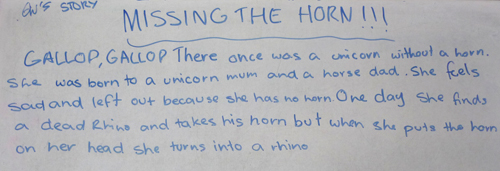 STORY
MISSING THE HORN!!!
GALLOP, GALLOP There once was a unicorn without a horn.
She was born to a unicorn mum and a horse dad. She feels
sad and left out because she has no horn. One day she finds
a dead Rhino and takes his horn but when she puts the horn
on her head she turns into a rhino